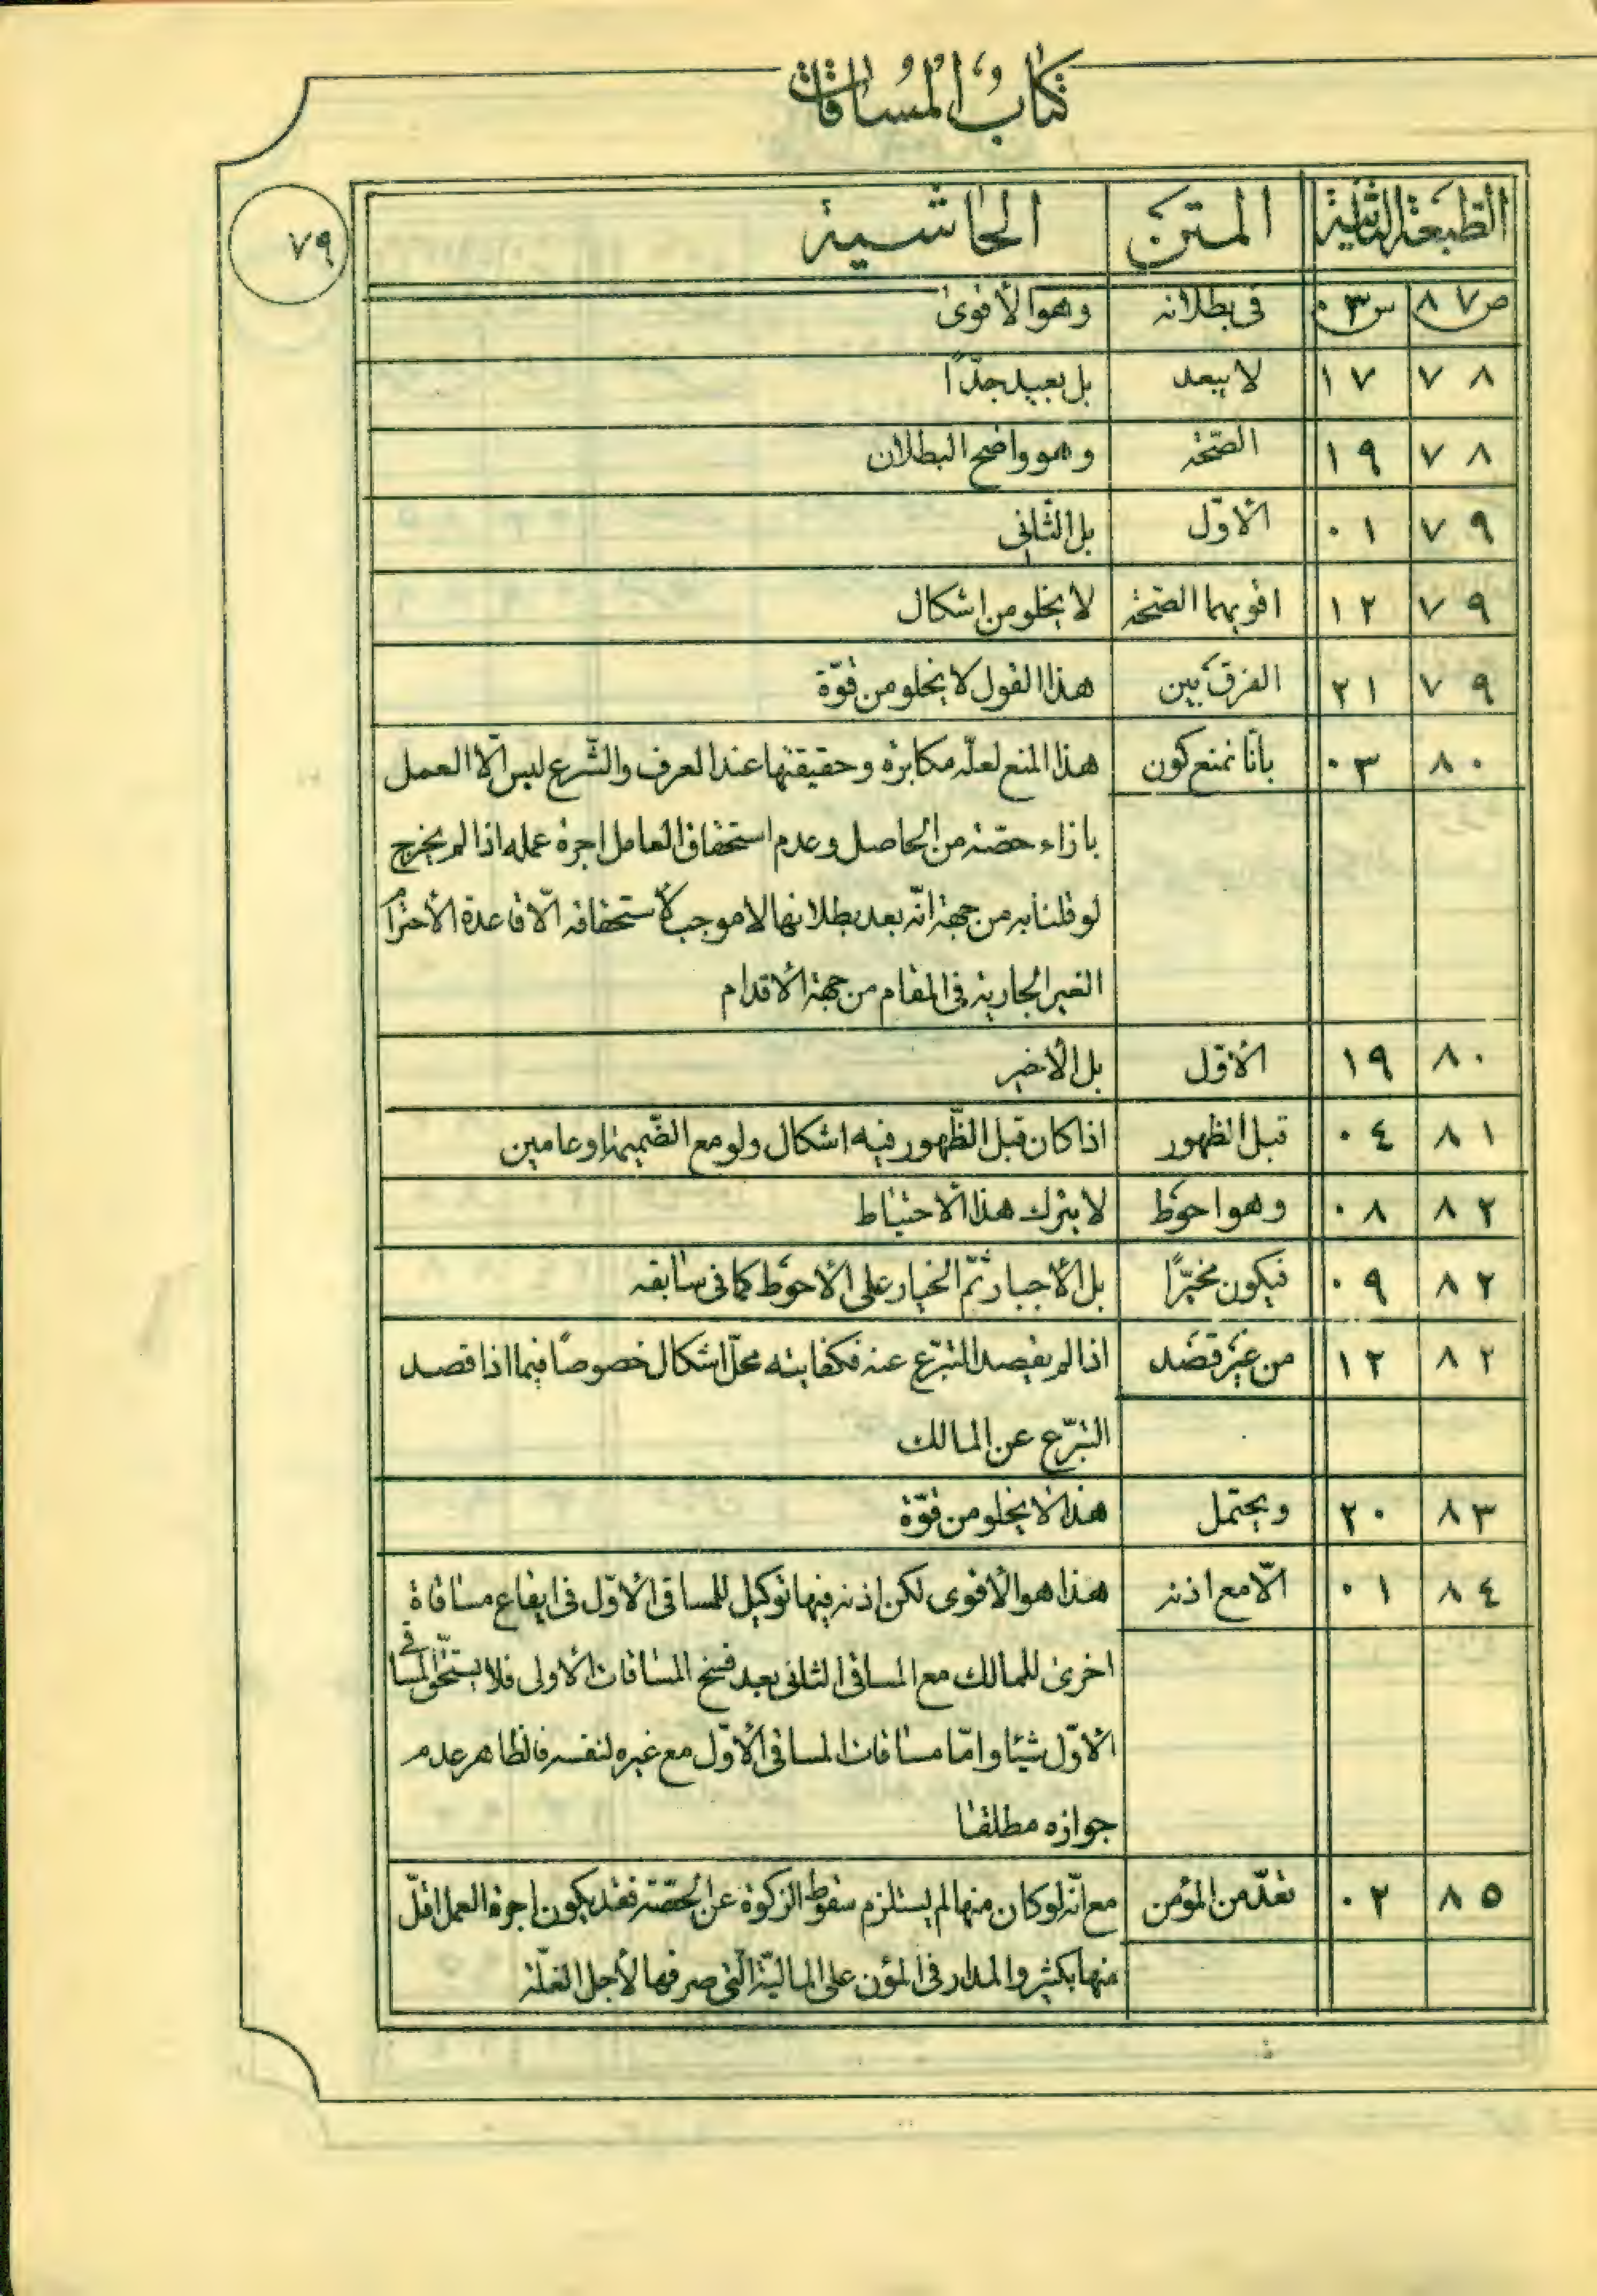 كتاب المساقات
٧٩
الطبعة الثانية المتن الحاشية
ص ٨٧ س ٠٣ في بطلانه وهو الأقوى
٨٧ ١٧ لا يبعد بل بعيد جدّاً
٨٧ ١٩ الصّحّة وهو واضح البطلان
٧٩ ٠١ الأوّل بل الثّاني
٧٩ ١٢ اقويهما الصّحّة لا يخلو من إشكال
٧٩ ٢١ الفرق بين هذا القول لا يخلو من قوّة
٨٠ ٠٣ بأنّا نمنع كون هذا المنع لعلّه مكابرة وحقيقتها عند العرف والشّرع ليس الّا العمل
بازاء حصّة من الحاصل وعدم استحقاق العامل اجرة عمله اذا لم يخرج
لو قلنا به من جهة انّه بعد بطلانها لا موجب لأستحقاقه الّا قاعدة الأحترام
الغير الجارية في المقام من جهة الأقدام
٨٠ ١٩ الأوّل بل الأخير
٨١ ٠٤ قبل الظهور اذا كان قبل الظّهور فيه اشكال ولو مع الضّميمة او عامين
٨٢ ٠٨ وهو احوط لا يترك هذا الأحتياط
٨٢ ٠٩ فيكون مخيّرًا بل الأجبار ثمّ الخيار على الأحوط كما في سابقه
٨٢ ١٢ من غير قصد اذا لم يقصد التبرّع عنه فكفايته محلّ اشكال خصوصاً فيما اذا قصد
التبرّع عن المالك
٨٣ ٢٠ ويحتمل هذا لا يخلو من قوّة
٨٤ ٠١ الّا مع اذنه هذا هو الأقوى لكن اذنه فيها توكيل للمساقي الأوّل في ايقاع مساقاة
اخرى للمالك مع المساقي الثاني بعد فسخ المساقات الأولى فلا يستحّق المساقي
الأوّل شيئا وامّا مساقات المساقي الأوّل مع غيره لنفسه فالظاهر عدم
جوازه مطلقا
٨٥ ٠٢ تعدّ من المؤمن مع انّه لو كان منها لم يستلزم سقوط الزكوة عن الحصّة فقد يكون اجرة العمل اقلّ
منها بكثير والمدار في المؤن على الماليّة الّتي صرفها لأجل الغلّة